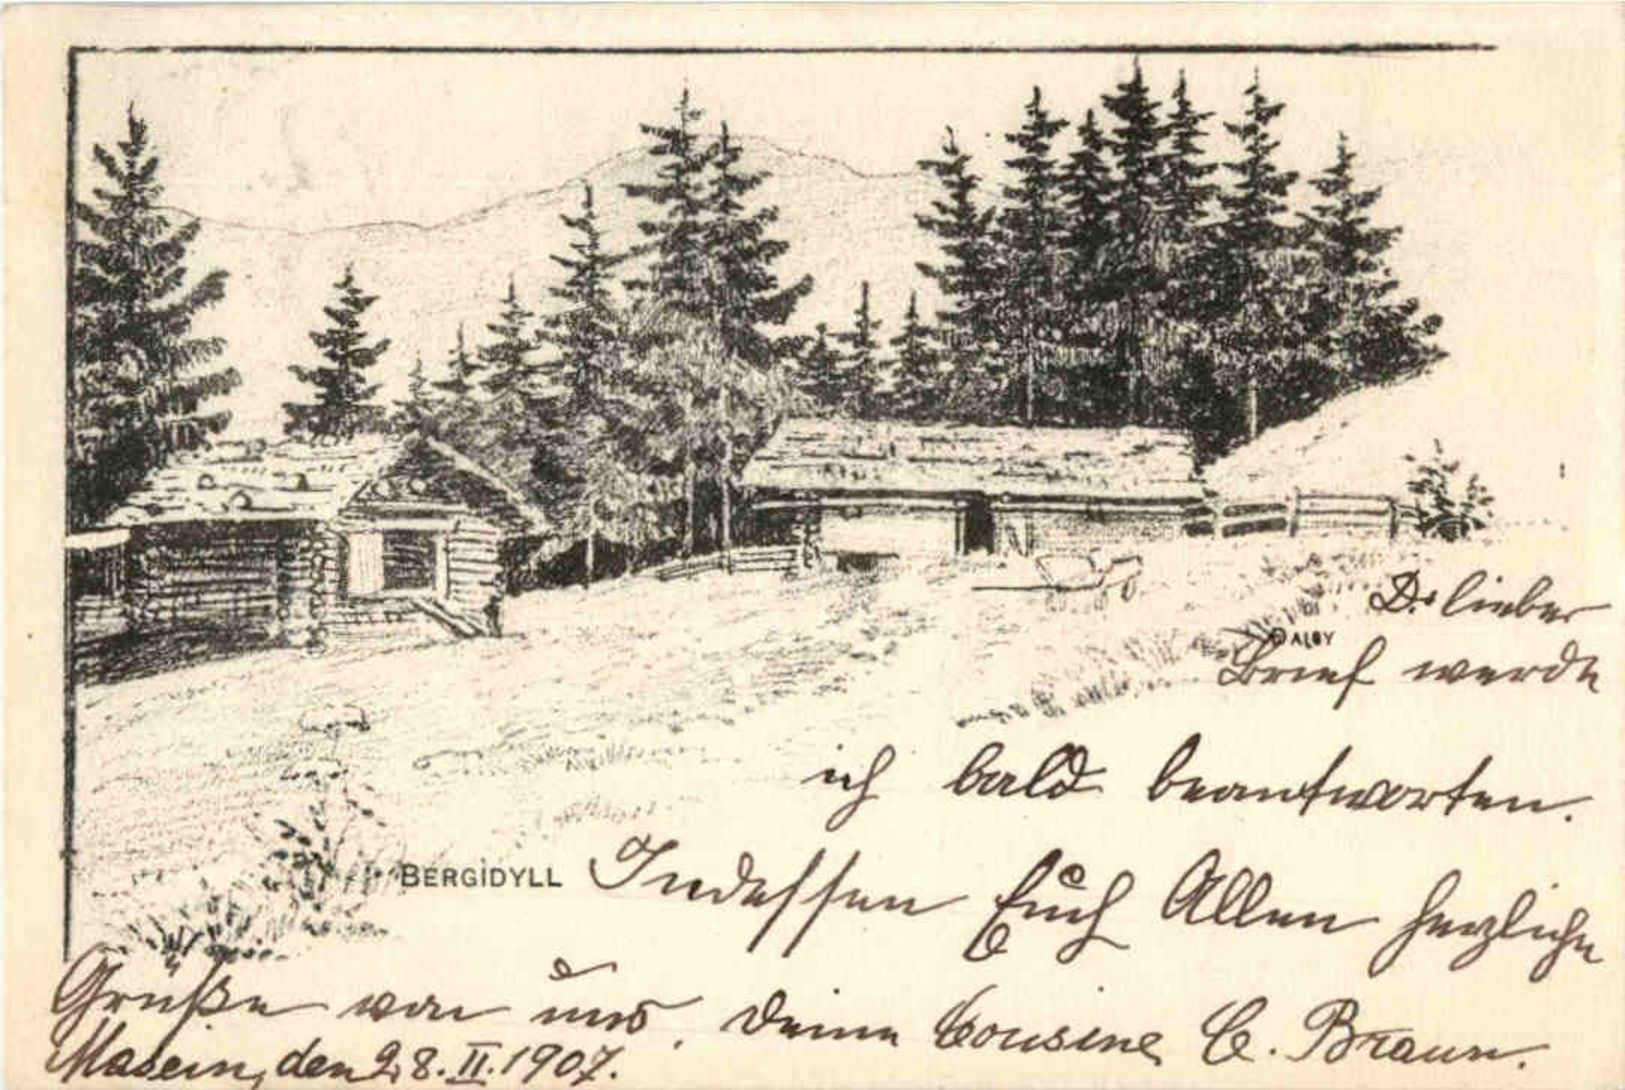 D. lieber
DALBY
Brief werde
ich bald beantworten.
BERGIDYLL Indessen Euch Allen herzliche
Grüße von uns. Deine Cousine C. Braun.
Masein, den 28. II. 1907.